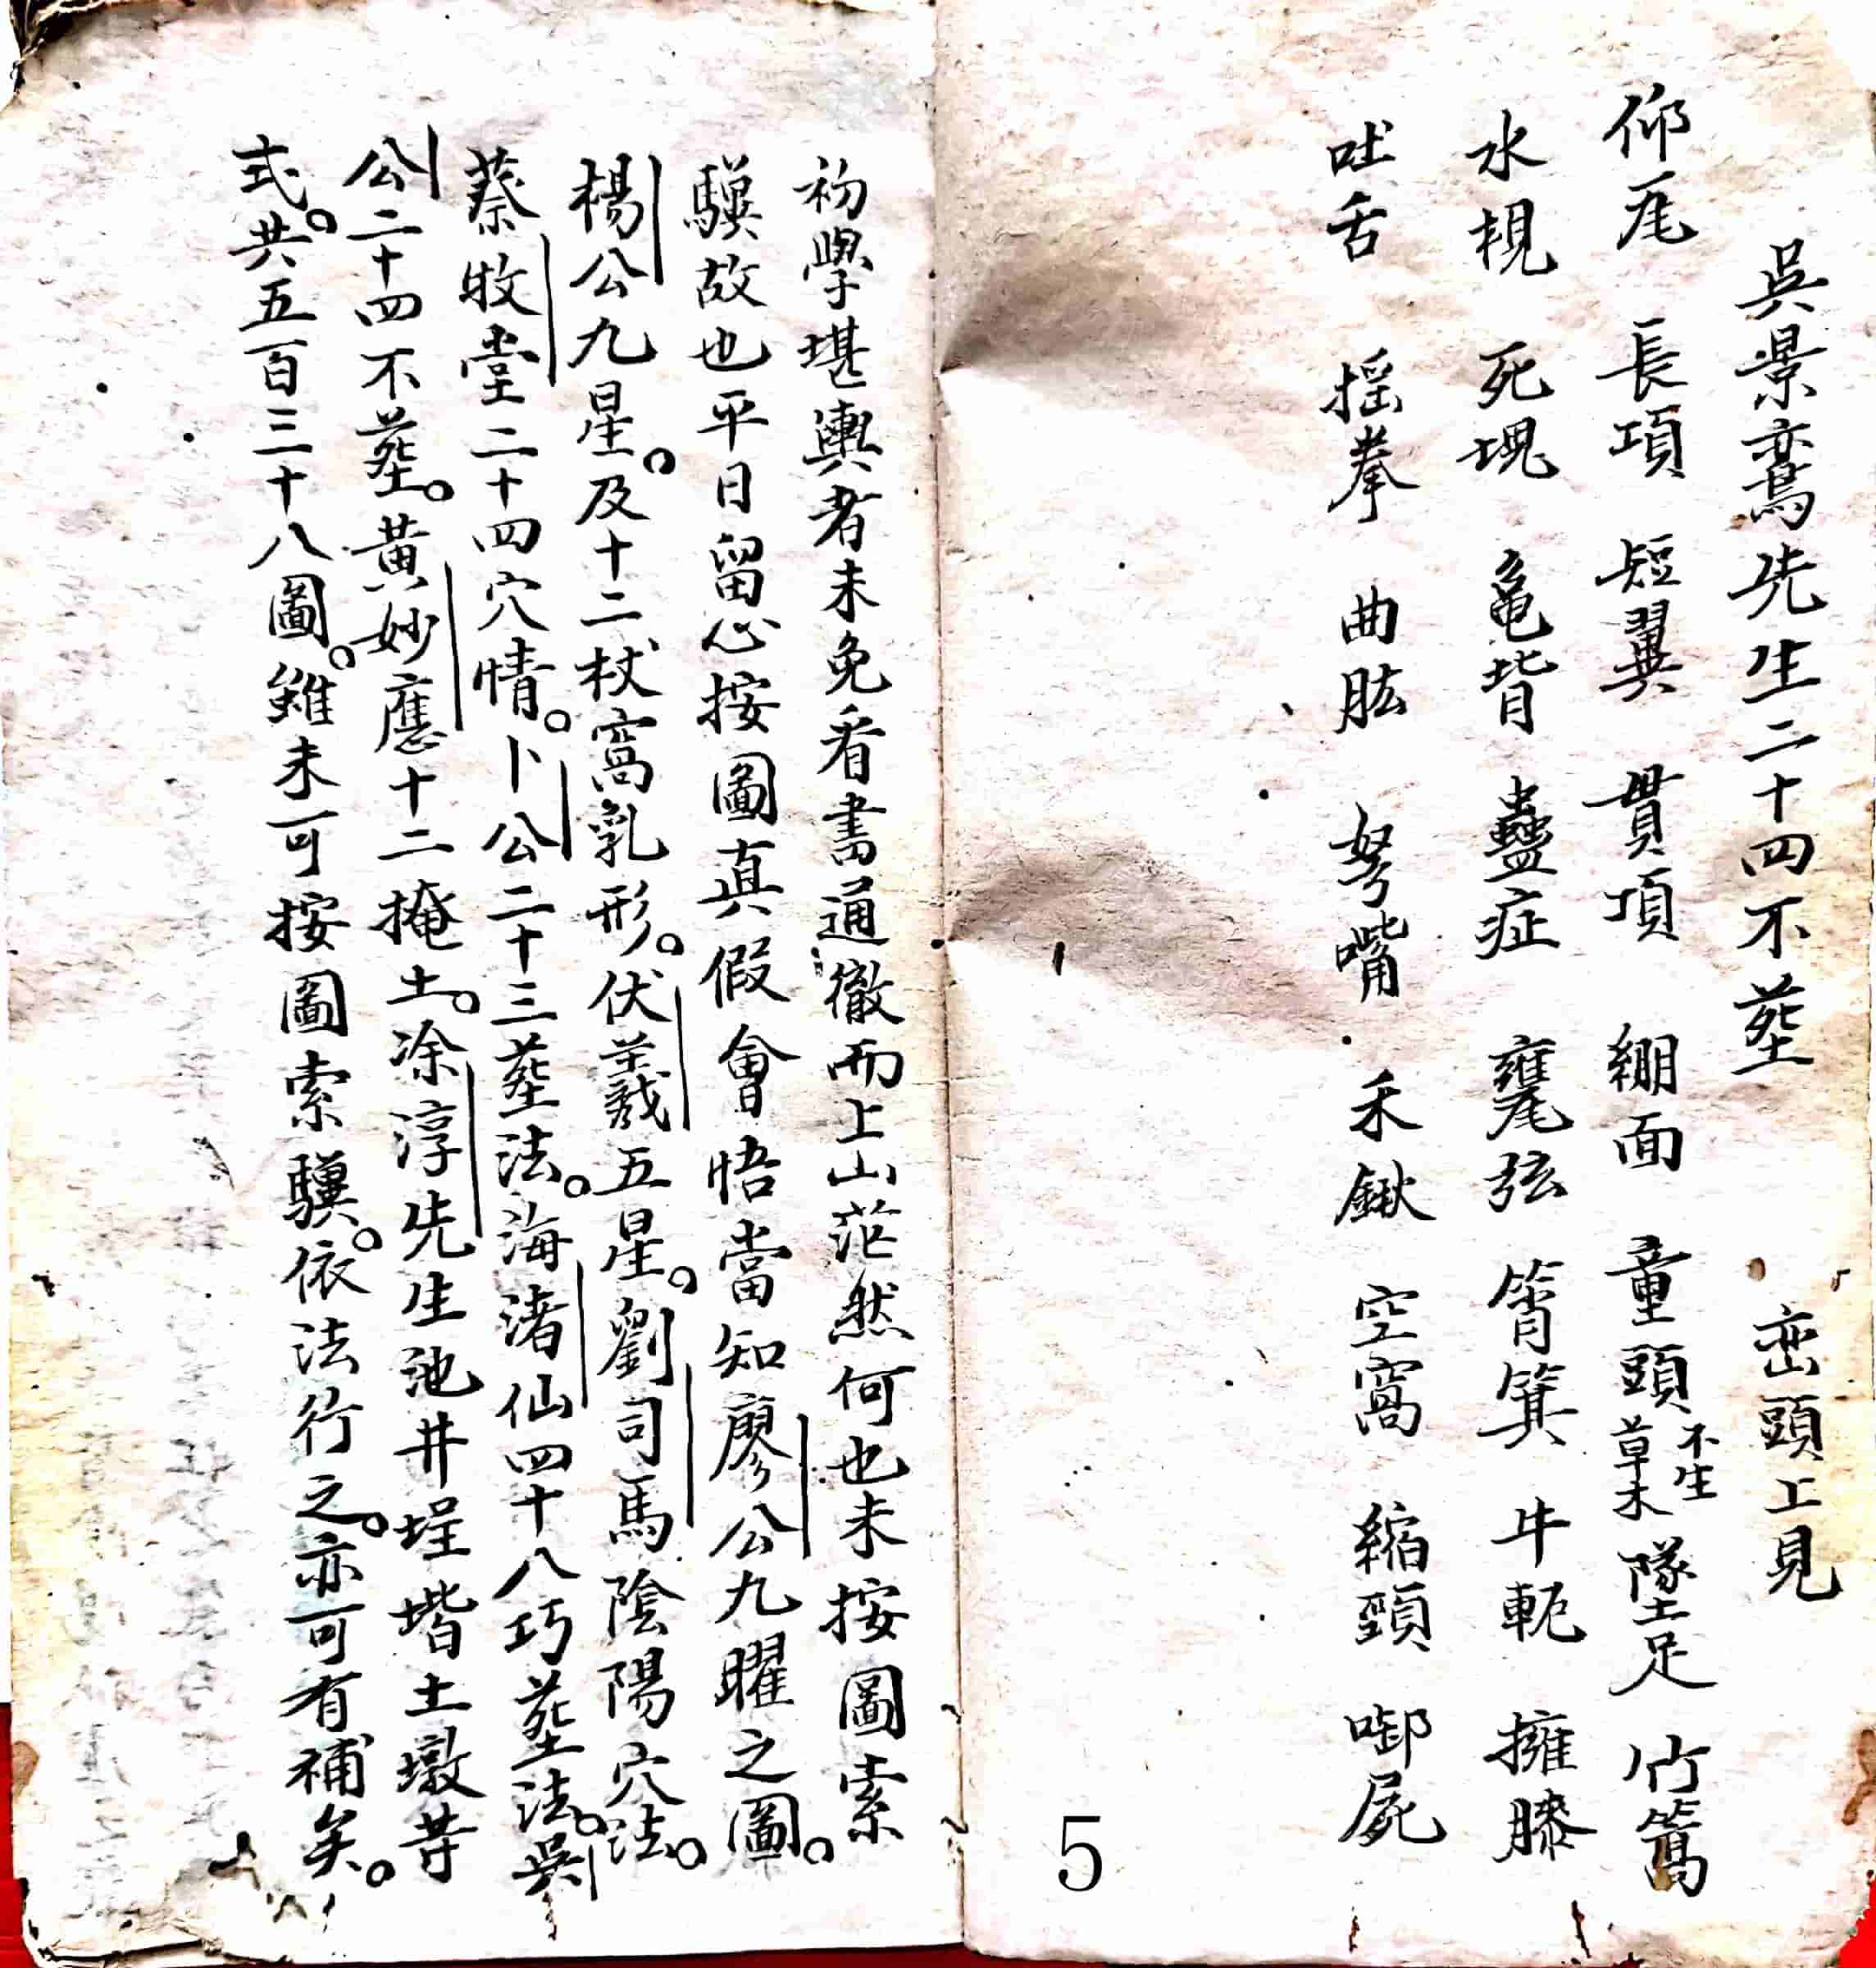 吳景鸞先生二十四不塟　巒頭上見
仰尾　長項　短翼　貫項　綳面　童頭不生草木　墜足　竹篙
水梘　死塊　龜背　蠱症　甕弦　筲箕　牛軛　擁膝
吐舌　搖拳　曲肱　弩嘴　禾鍬　空窩　縮頸　啣屍
5
初學堪輿者未免看書通徹而上山茫然何也未按圖索
驥故也平日留心按圖真假會悟當知廖公九曜之圖。
楊公九星。及十二杖窩乳形。伏羲五星。劉司馬陰陽穴法。
蔡牧堂二十四穴情。卜公二十三塟法。海渚仙四十八巧塟法。吳
公二十四不塟。黃妙應十二掩土。凃淳先生池井埕堦土墩等
式。共五百三十八圖。雖未可按圖索驥。依法行之。亦可有補矣。